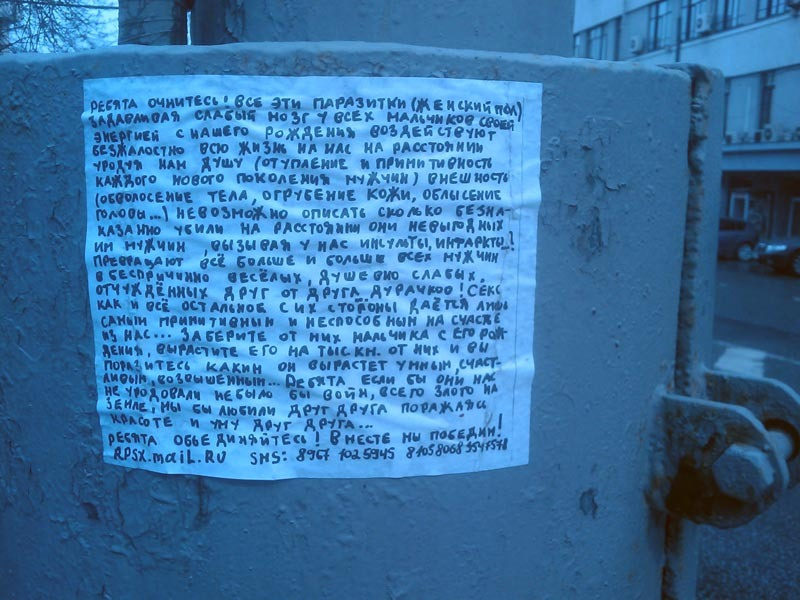 РЕБЯТА ОЧНИТЕСЬ! ВСЕ ЭТИ ПАРАЗИТКИ (ЖЕНСКИЙ ПОЛ)
ЗАДАВЛИВАЯ СЛАБЫЙ МОЗГ У ВСЕХ МАЛЬЧИКОВ СВОЕЙ
ЭНЕРГИЕЙ С НАШЕГО РОЖДЕНИЯ ВОЗДЕЙСТВУЮТ
БЕЗЖАЛОСТНО ВСЮ ЖИЗНЬ НА НАС НА РАССТОЯНИИ
УРОДУЯ НАМ ДУШУ (ОТУПЛЕНИЕ И ПРИМИТИВНОСТЬ
КАЖДОГО НОВОГО ПОКОЛЕНИЯ МУЖЧИН) ВНЕШНОСТЬ
(ОБВОЛОСЕНИЕ ТЕЛА, ОГРУБЕНИЕ КОЖИ, ОБЛЫСЕНИЕ
ГОЛОВЫ...) НЕВОЗМОЖНО ОПИСАТЬ СКОЛЬКО БЕЗНА-
КАЗАННО УБИЛИ НА РАССТОЯНИИ ОНИ НЕВЫГОДНЫХ
ИМ МУЖЧИН, ВЫЗЫВАЯ У НАС ИНСУЛЬТЫ, ИНФАРКТЫ...!
ПРЕВРАЩАЮТ ВСЁ БОЛЬШЕ И БОЛЬШЕ ВСЕХ МУЖЧИН
В БЕСПРИЧИННО ВЕСЁЛЫХ, ДУШЕВНО СЛАБЫХ,
ОТЧУЖДЁННЫХ ДРУГ ОТ ДРУГА ДУРАЧКОВ! СЕКС
КАК И ВСЁ ОСТАЛЬНОЕ С ИХ СТОРОНЫ ДАЁТСЯ ЛИШЬ
САМЫМ ПРИМИТИВНЫМ И НЕСПОСОБНЫМ НА СЧАСТЬЕ
ИЗ НАС... ЗАБЕРИТЕ ОТ НИХ МАЛЬЧИКА С ЕГО РОЖ-
ДЕНИЯ, ВЫРАСТИТЕ ЕГО НА ТЫС.КМ. ОТ НИХ И ВЫ
ПОРАЗИТЕСЬ КАКИМ ОН ВЫРАСТЕТ УМНЫМ, СЧАСТ-
ЛИВЫМ, ВОЗВЫШЕННЫМ... РЕБЯТА ЕСЛИ БЫ ОНИ НАС
НЕ УРОДОВАЛИ НЕБЫЛО БЫ ВОЙН, ВСЕГО ЗЛОГО НА
ЗЕМЛЕ, МЫ БЫ ЛЮБИЛИ ДРУГ ДРУГА ПОРАЖАЯСЬ
КРАСОТЕ И УМУ ДРУГ ДРУГА...
РЕБЯТА ОБЪЕДИНЯЙТЕСЬ! ВМЕСТЕ МЫ ПОБЕДИМ!
RPSX.maiL.RU SMS: 8967 1025945